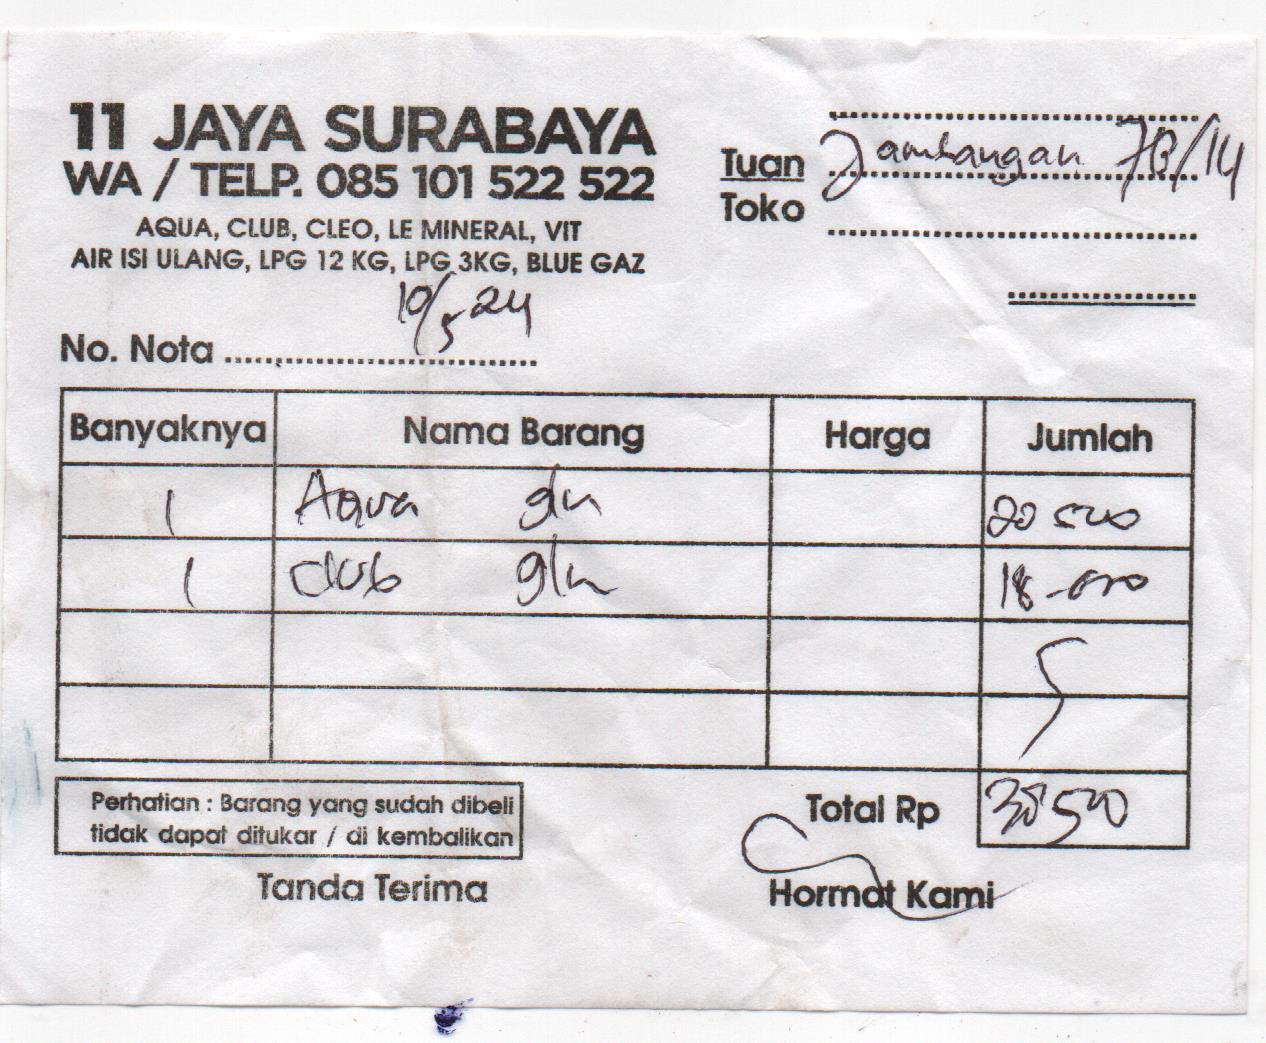 11 JAYA SURABAYA
WA / TELP. 085 101 522 522
AQUA, CLUB, CLEO, LE MINERAL, VIT
AIR ISI ULANG, LPG 12 KG, LPG 3KG, BLUE GAZ
Tuan Jambangan 7B/14
Toko
10/5 24
No. Nota
Banyaknya Nama Barang Harga Jumlah
1 Aqua gln 20 500
1 club gln 18.000
Total Rp 38 500
Perhatian : Barang yang sudah dibeli
tidak dapat ditukar / di kembalikan
Tanda Terima Hormat Kami